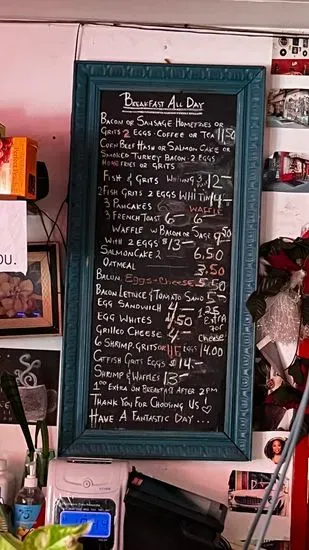 Breakfast All Day
Bacon or Sausage Homefries or
Grits 2 Eggs - Coffee or Tea 11.50
Corn Beef Hash or Salmon Cake or
Smoked Turkey Bacon - 2 Eggs
Home Fries or Grits
Fish & Grits Whiting 12-
2 Fish Grits 2 Eggs Whiting 14-
3 Pancakes Waffle
3 French Toast 6- 6-
Waffle w Bacon or Sage 9.50
With 2 Eggs $13-
Salmon Cake 2 6.50
Oatmeal 3.50
Bacon, Eggs + Cheese 5.50
Bacon Lettuce & Tomato Sand 5-
Egg Sandwich 4- 1.25
Egg Whites 4.50 Extra
Grilled Cheese 4- for Cheese
6 Shrimp, Grits or Eggs 14.00
Catfish Grits Eggs $14-
Shrimp & Waffles 13-
1.00 Extra on Breakfast After 2 PM
Thank You For Choosing Us!
Have A Fantastic Day...
OU.